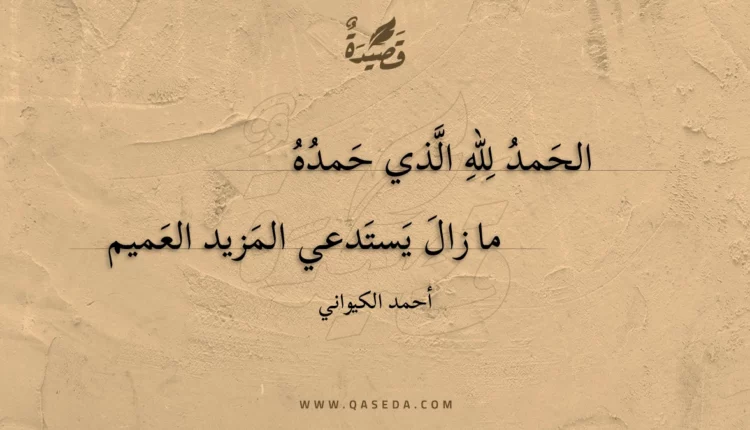 قَصِيْدَةٌ
الحَمدُ لِلَّهِ الَّذي حَمدُهُ
ما زالَ يَستَدعي المَزيد العَميم
أحمد الكيواني
WWW.QASEDA.COM